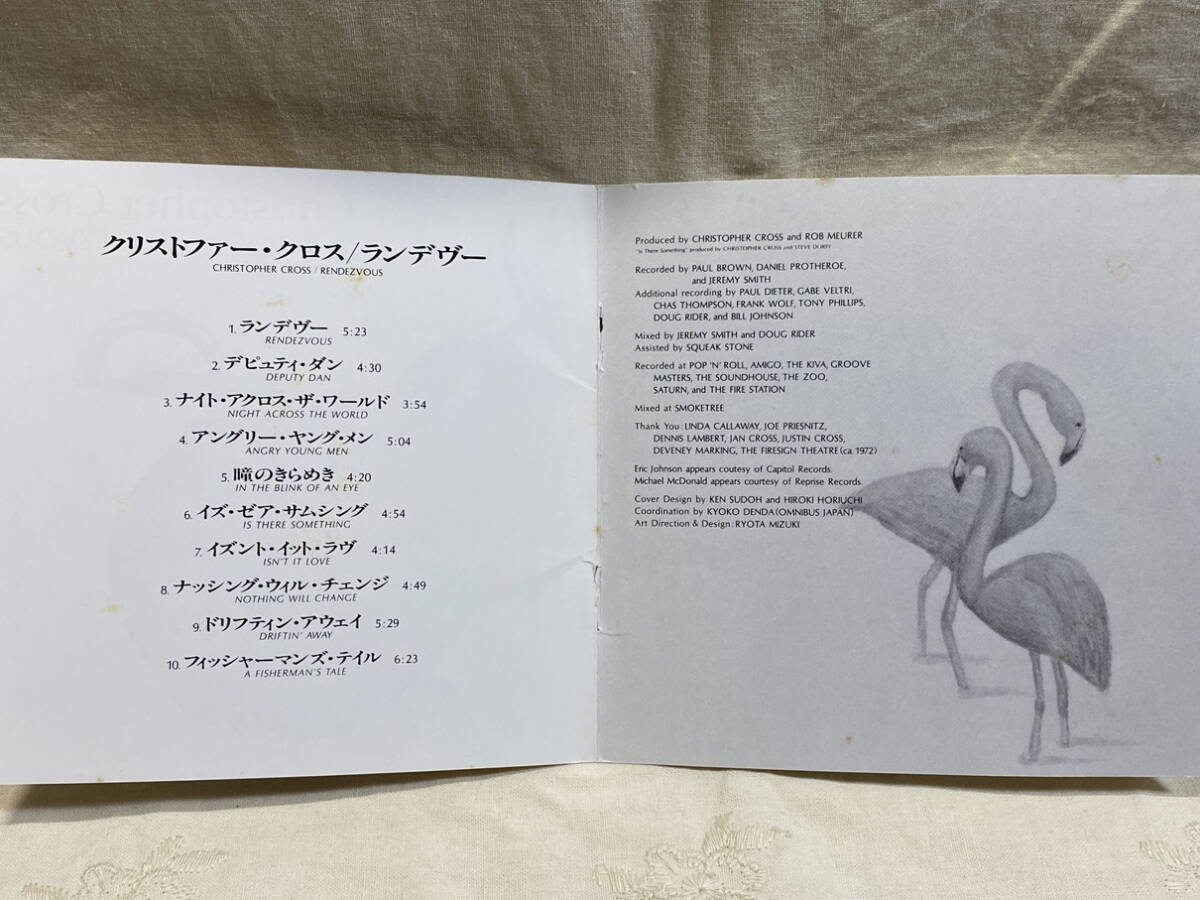 クリストファー・クロス/ランデヴー
CHRISTOPHER CROSS / RENDEZVOUS
1. ランデヴー 5:23
RENDEZVOUS
2. デピュティ・ダン 4:30
DEPUTY DAN
3. ナイト・アクロス・ザ・ワールド 3:54
NIGHT ACROSS THE WORLD
4. アングリー・ヤング・メン 5:04
ANGRY YOUNG MEN
5. 瞳のきらめき 4:20
IN THE BLINK OF AN EYE
6. イズ・ゼア・サムシング 4:54
IS THERE SOMETHING
7. イズント・イット・ラヴ 4:14
ISN'T IT LOVE
8. ナッシング・ウィル・チェンジ 4:49
NOTHING WILL CHANGE
9. ドリフティン・アウェイ 5:29
DRIFTIN' AWAY
10. フィッシャーマンズ・テイル 6:23
A FISHERMAN'S TALE
Produced by CHRISTOPHER CROSS and ROB MEURER
"Is There Something" produced by CHRISTOPHER CROSS and STEVE DORFF
Recorded by PAUL BROWN, DANIEL PROTHEROE,
and JEREMY SMITH
Additional recording by PAUL DIETER, GABE VELTRI,
CHAS THOMPSON, FRANK WOLF, TONY PHILLIPS,
DOUG RIDER, and BILL JOHNSON
Mixed by JEREMY SMITH and DOUG RIDER
Assisted by SQUEAK STONE
Recorded at POP 'N' ROLL, AMIGO, THE KIVA, GROOVE
MASTERS, THE SOUNDHOUSE, THE ZOO,
SATURN, and THE FIRE STATION
Mixed at SMOKETREE
Thank You: LINDA CALLAWAY, JOE PRIESNITZ,
DENNIS LAMBERT, JAN CROSS, JUSTIN CROSS,
DEVENEY MARKING, THE FIRESIGN THEATRE (ca. 1972)
Eric Johnson appears coutesy of Capitol Records.
Michael McDonald appears courtesy of Reprise Records.
Cover Design by KEN SUDOH and HIROKI HORIUCHI
Coordination by KYOKO DENDA (OMNIBUS JAPAN)
Art Direction & Design: RYOTA MIZUKI